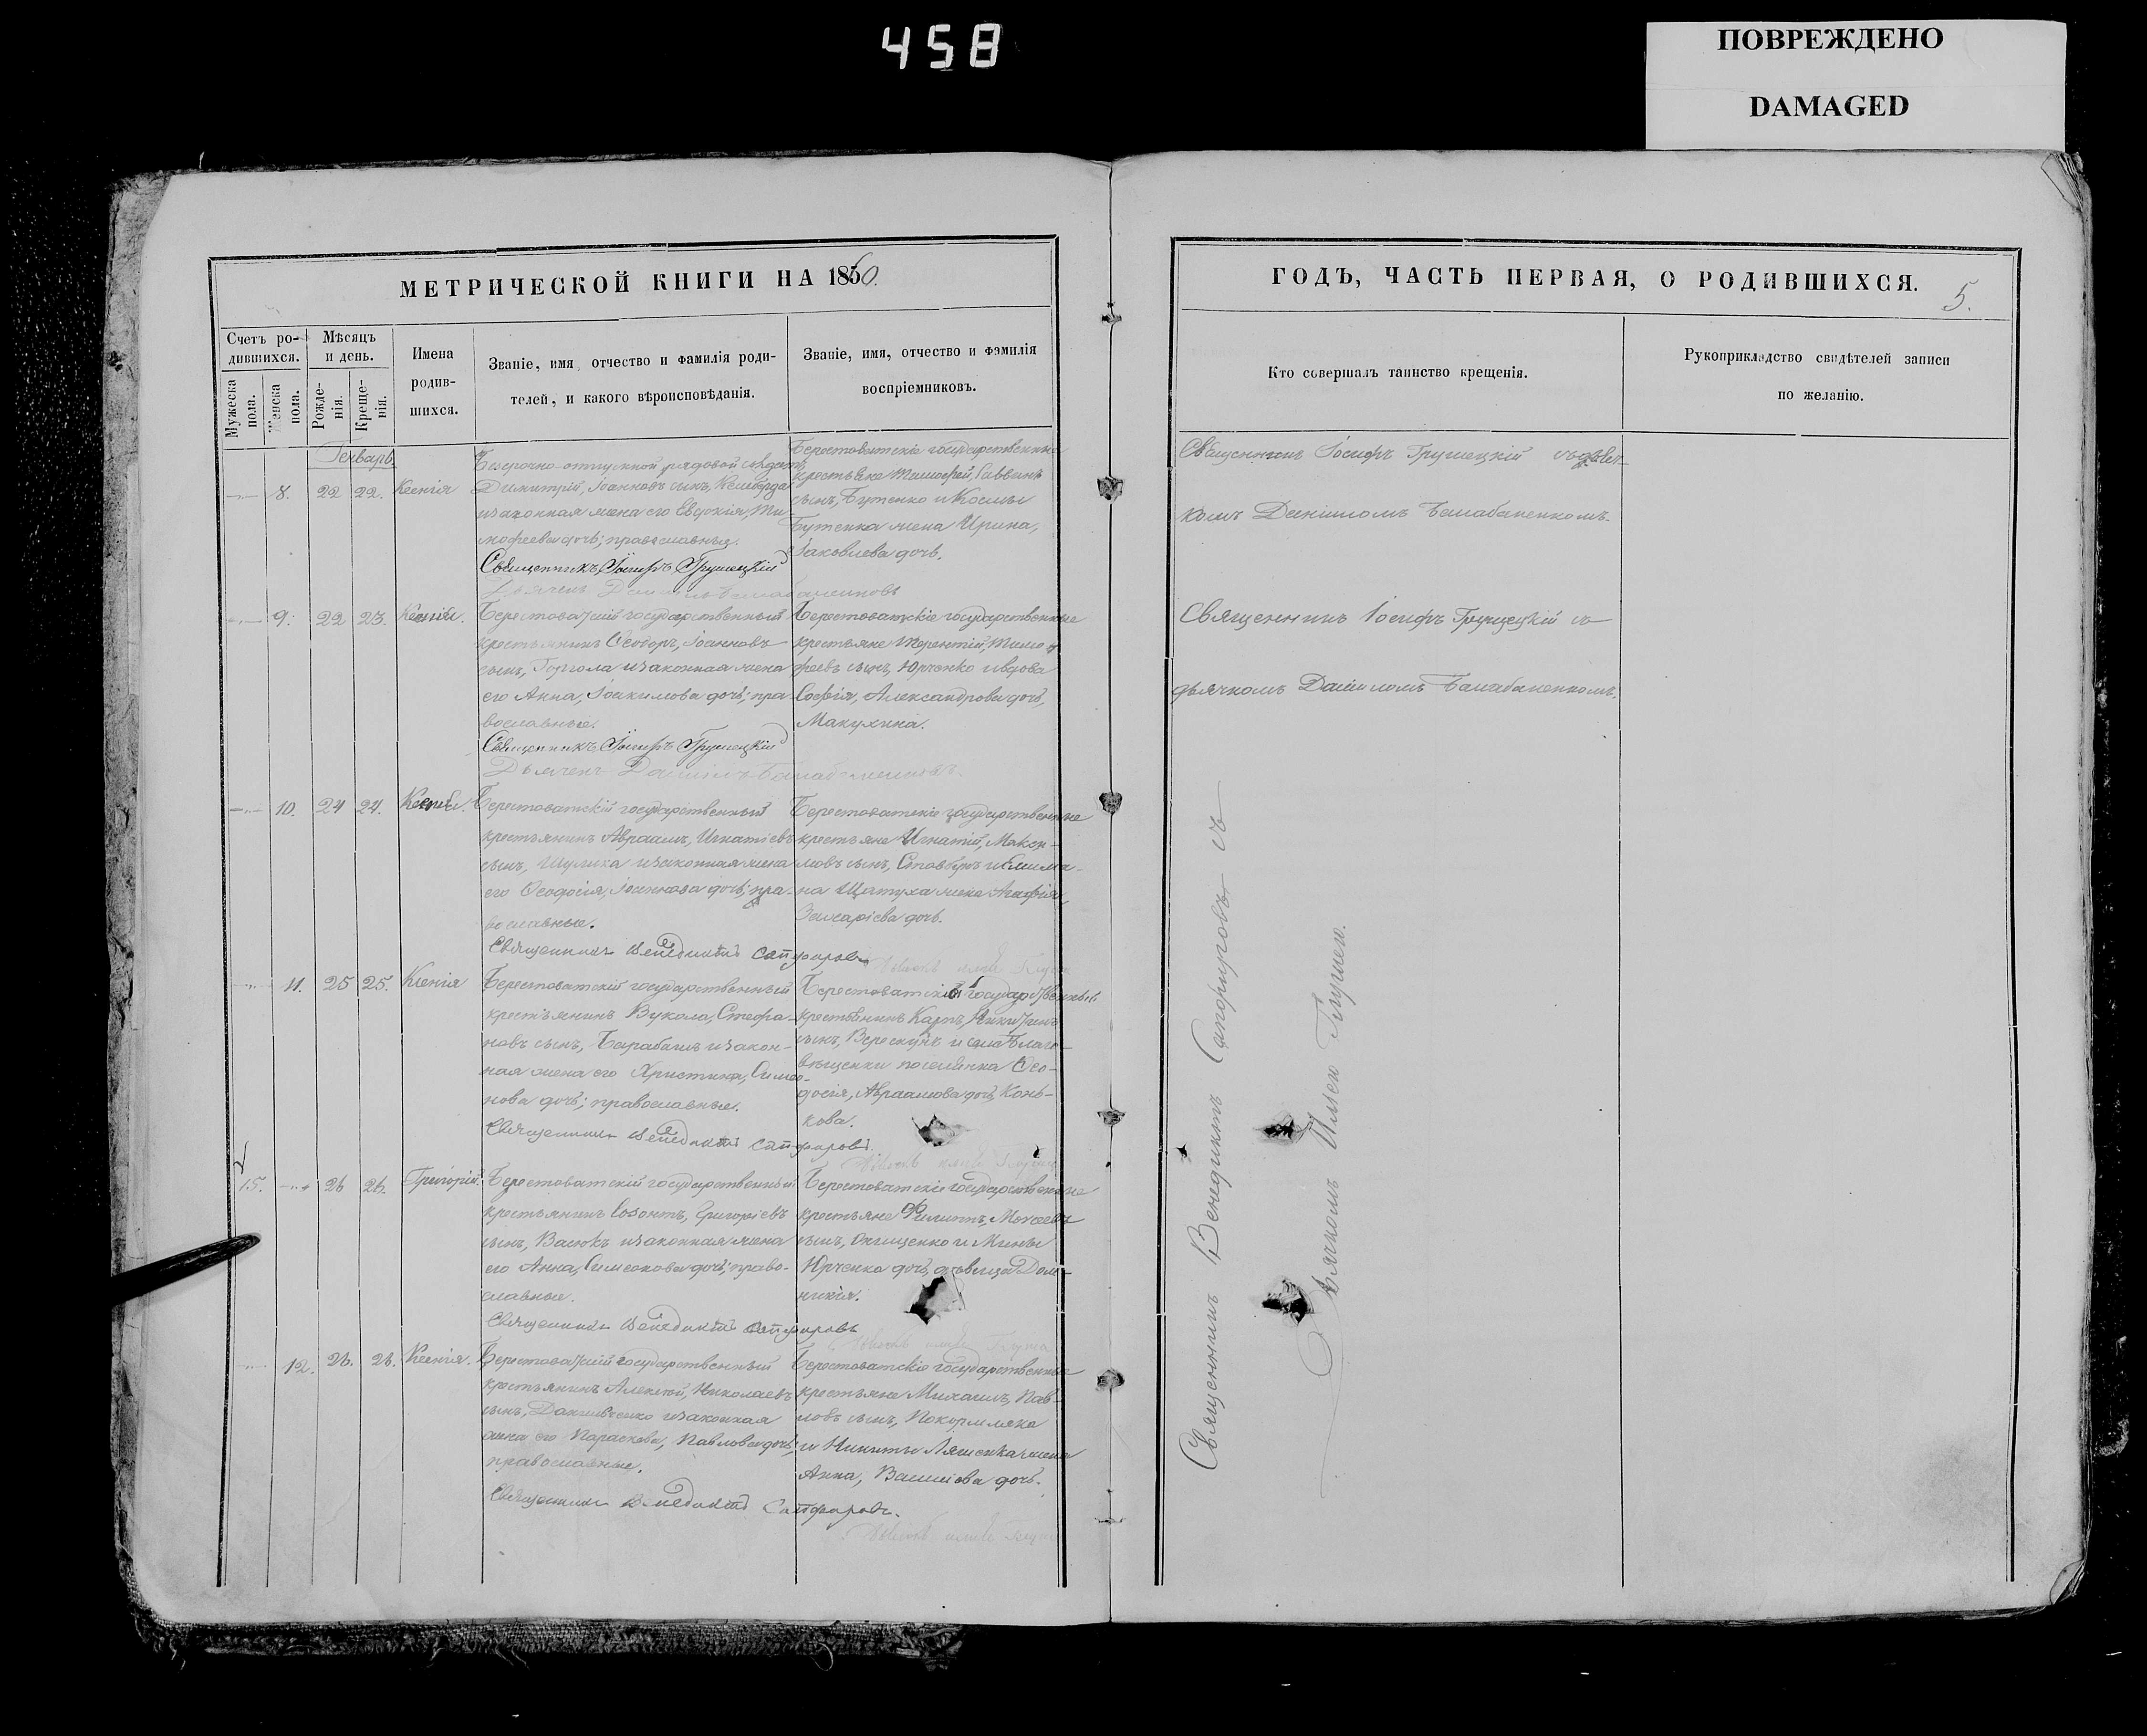 458
ПОВРЕЖДЕНО
DAMAGED
МЕТРИЧЕСКОЙ КНИГИ НА 1860.
Счетъ ро-
дившихся.
Мужеска
пола.
Женска
пола.
Мѣсяцъ
и день.
Рожде-
нія.
Креще-
нія.
Имена
родив-
шихся.
Званіе, имя, отчество и фамилія роди-
телей, и какого вѣроисповѣданія.
Званіе, имя, отчество и фамилія
воспріемниковъ.
Генварь
8. 22 22. Ксенія
Безсрочно-отпускной рядовой солдатъ
Димитрій, Іоанновъ сынъ,
и законная жена его Евдокія, Ти-
мофеева дочь; православные.
Священникъ Іосифъ Грушецкій
Берестоватскіе государственные
крестьяне Тимофей, Саввинъ
сынъ, Бутенко и Космы
Бутенка жена Ирина,
Іаковлева дочь.
9. 22 23. Ксенія.
Берестоватскій государственный
крестьянинъ Ѳеодоръ, Іоанновъ
сынъ, и законная жена
его Анна, Іоакимова дочь; пра-
вославные.
Священникъ Іосифъ Грушецкій
Дьячекъ Даніилъ Балабаненковъ.
Берестоватскіе государственные
крестьяне Терентій, Тимо-
феевъ сынъ, Юрченко и вдова
Софія, Александрова дочь,
Макухина.
10. 24 24. Ксенія.
Берестоватскій государственный
крестьянинъ Авраамъ, Игнатіевъ
сынъ, Шулика и законная жена
его Ѳеодосія, Іоаннова дочь; пра-
вославные.
Священникъ Венедиктъ Сапфировъ
Берестоватскіе государственные
крестьяне Игнатій, Макси-
мовъ сынъ, и Климе-
на жена Агафія,
Захаріева дочь.
11. 25 25. Ксенія
Берестоватскій государственный
крестьянинъ Вукола, Стефа-
новъ сынъ, Барабашъ и закон-
ная жена его Христина, Симео-
нова дочь; православные.
Священникъ Венедиктъ Сапфировъ.
Берестоватскій государственный
крестьянинъ Карпъ, Никитинъ
сынъ, Верескунъ и села Благо-
вѣщенки поселянка Ѳео-
досія, Авраамова дочь, Конь-
кова.
15. 26 26. Григорій.
Берестоватскій государственный
крестьянинъ Созонтъ, Григоріевъ
сынъ, Васюкъ и законная жена
его Анна, Симеонова дочь; право-
славные.
Священникъ Венедиктъ Сапфировъ
Берестоватскіе государственные
крестьяне Филиппъ, Моисеевъ
сынъ, Онищенко и Мины
Юрченка дочь, дѣвица Дом-
никія.
12. 26. 26. Ксенія.
Берестоватскій государственный
крестьянинъ Алексѣй, Николаевъ
сынъ, Данильченко и законная
жена его Параскева, Павлова дочь;
православные.
Священникъ Венедиктъ Сапфировъ.
Берестоватскіе государственные
крестьяне Михаилъ, Пав-
ловъ сынъ, Покормляка
и Никиты Ляшенка жена
Анна, Василіева дочь.
ГОДЪ, ЧАСТЬ ПЕРВАЯ, О РОДИВШИХСЯ.
5.
Кто совершалъ таинство крещенія.
Рукоприкладство свидѣтелей записи
по желанію.
Священникъ Іосифъ Грушецкій съ дьяч-
комъ Даніиломъ Балабаненкомъ.
Священникъ Іосифъ Грушецкій съ
дьячкомъ Даніиломъ Балабаненкомъ.
Священникъ Венедиктъ Сапфировъ съ
Дьячкомъ Ильею